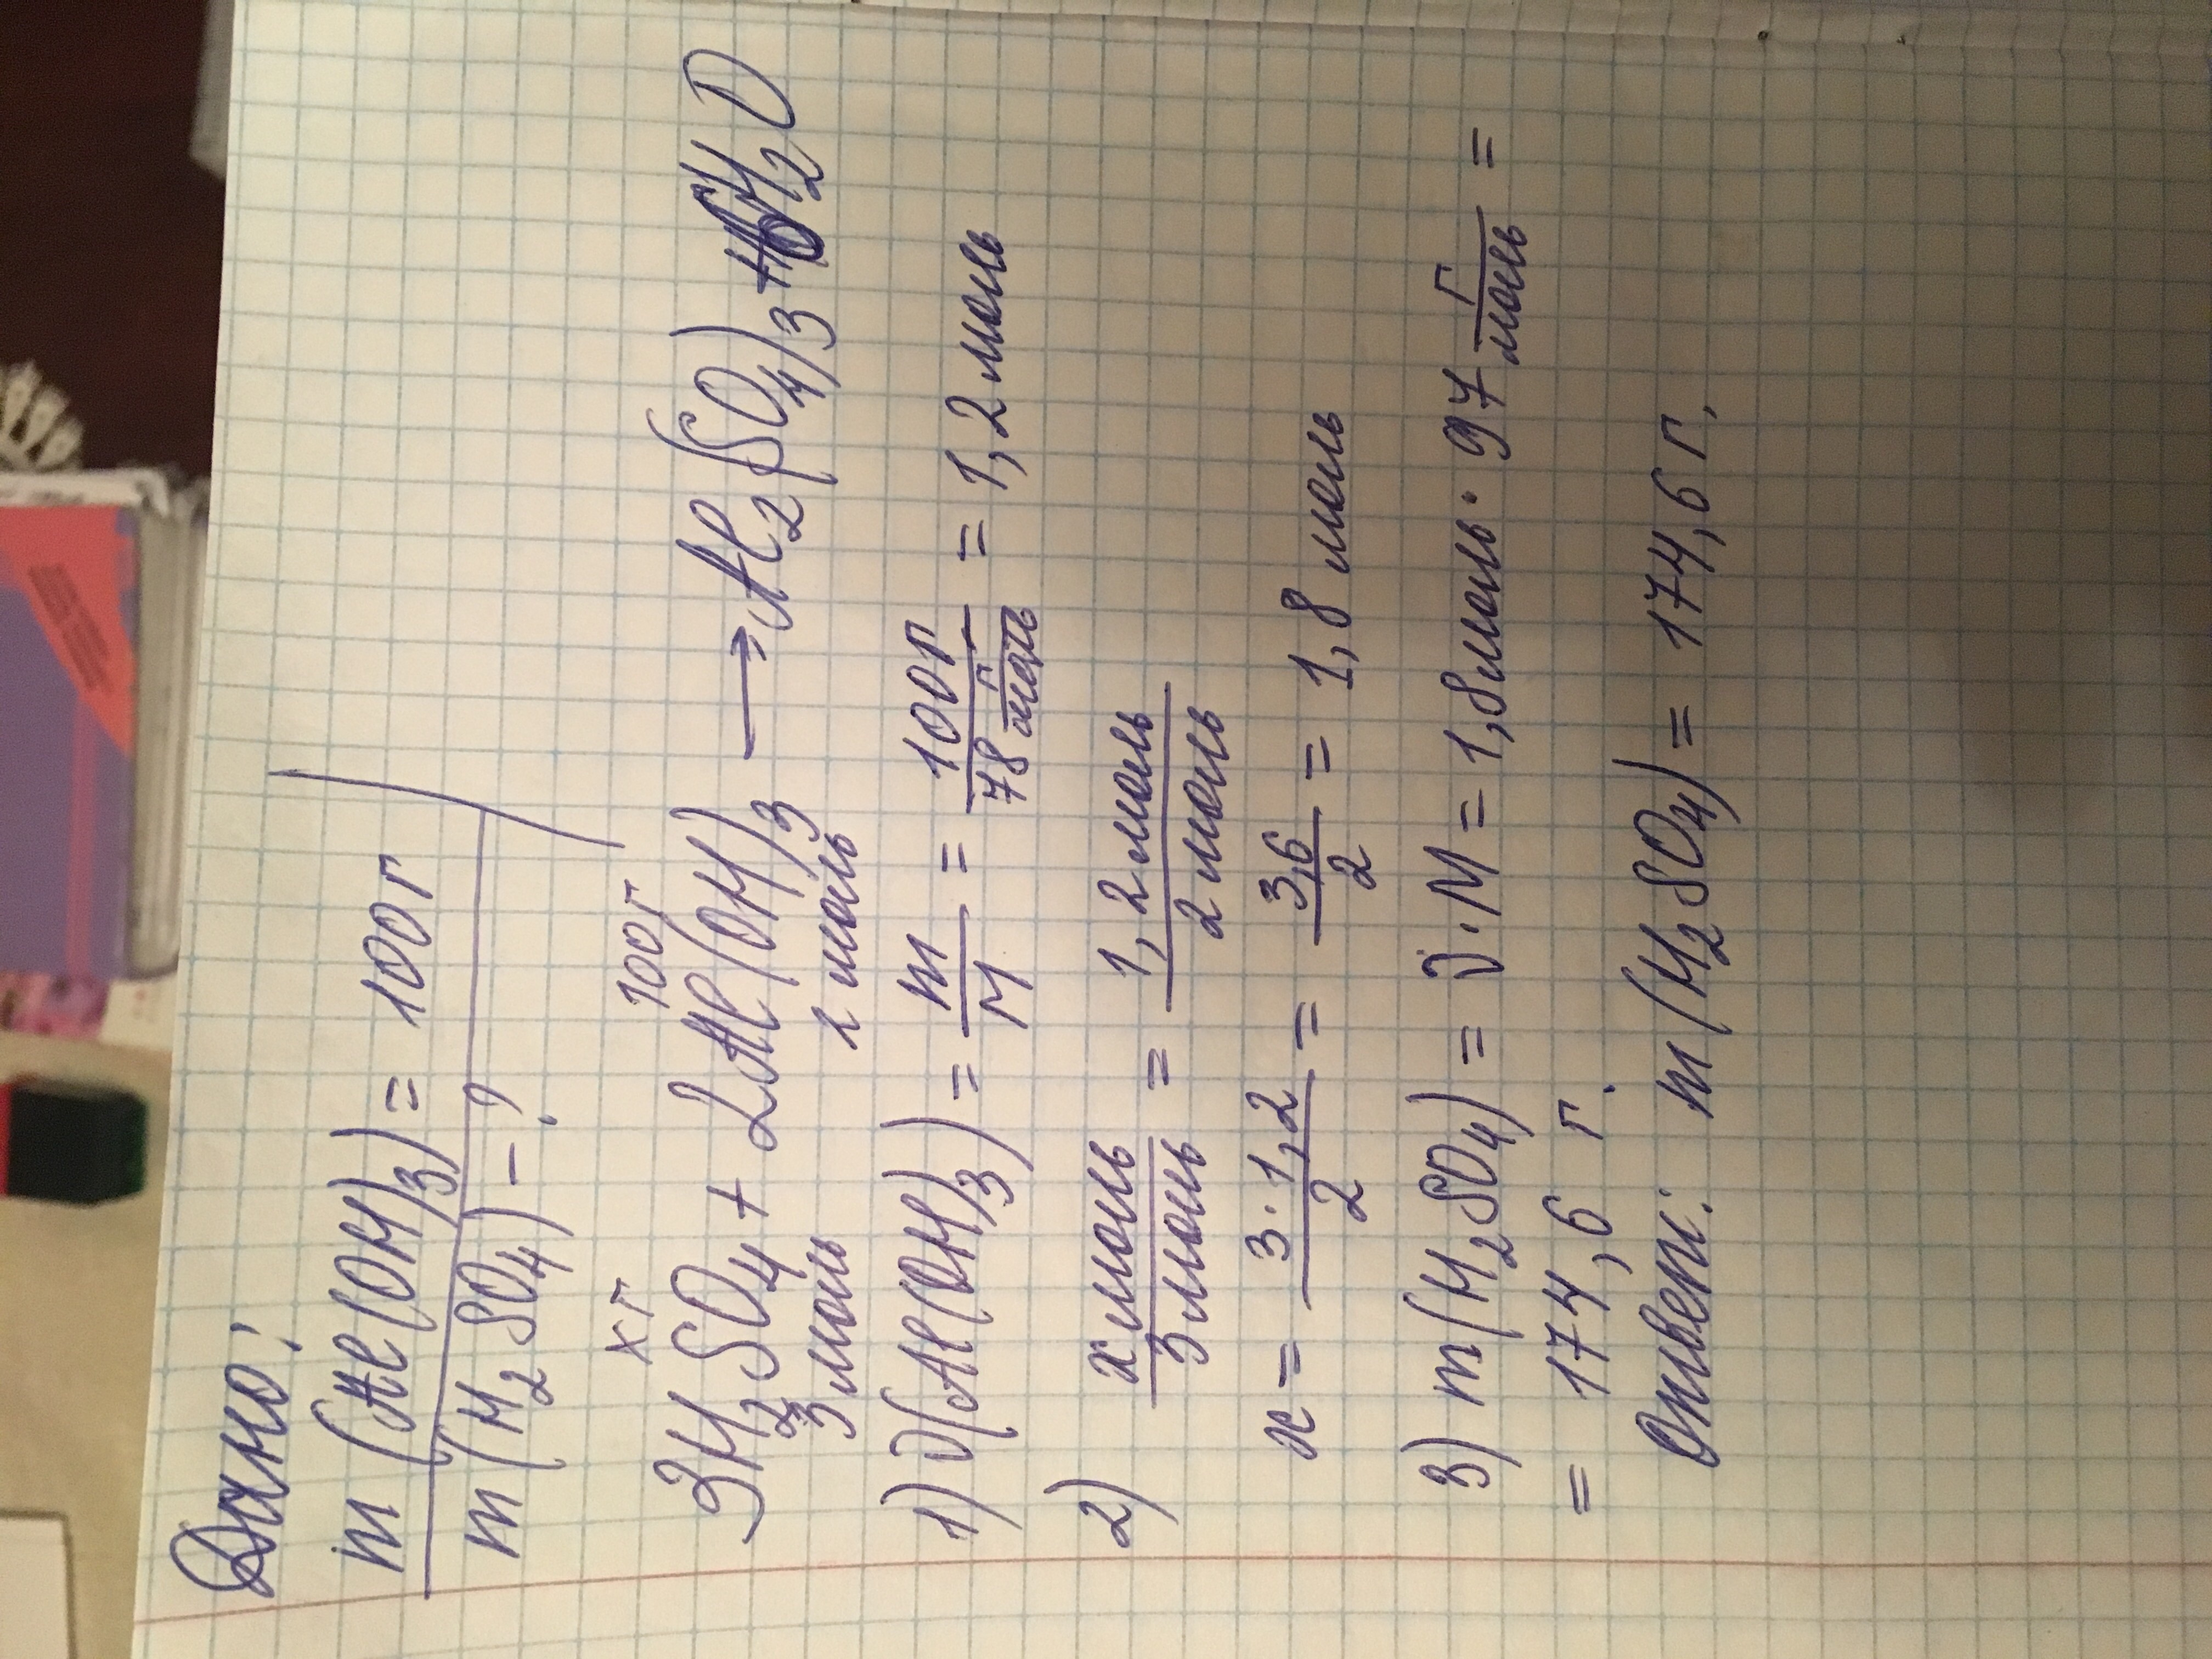 Дано:
m(Al(OH)3) = 100г
m(H2SO4) - ?
xг 100г
3H2SO4 + 2Al(OH)3 → Al2(SO4)3 + 6H2O
3 моль 2 моль
1) ν(Al(OH)3) = m/M = 100г/78 г/моль = 1,2 моль
2) x моль/3 моль = 1,2 моль/2 моль
x = 3·1,2/2 = 3,6/2 = 1,8 моль
3) m(H2SO4) = ν·M = 1,8 моль · 97 г/моль =
= 174,6 г.
Ответ: m(H2SO4) = 174,6 г.